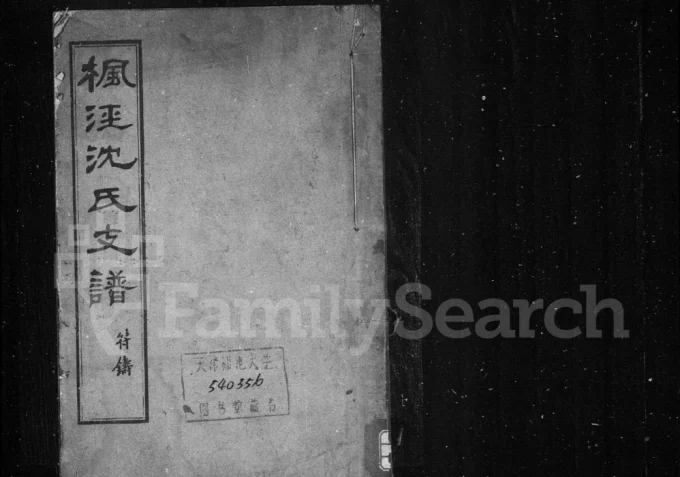 楓涇沈氏支譜
符鑄
天津師范大学
540556
图书館藏書
FamilySearch